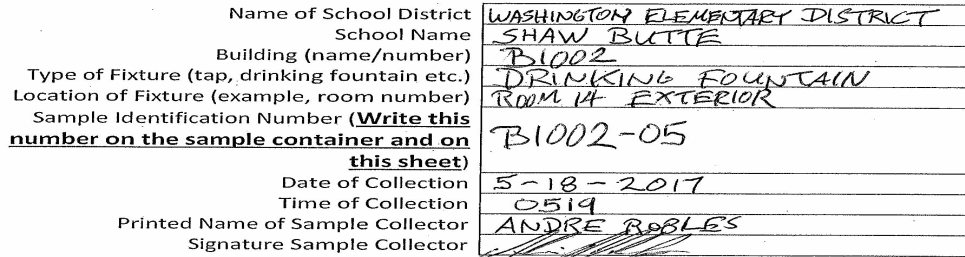 Name of School District WASHINGTON ELEMENTARY DISTRICT
School Name SHAW BUTTE
Building (name/number) B1002
Type of Fixture (tap, drinking fountain etc.) DRINKING FOUNTAIN
Location of Fixture (example, room number) ROOM 14 EXTERIOR
Sample Identification Number (Write this
number on the sample container and on B1002-05
this sheet)
Date of Collection 5-18-2017
Time of Collection 0519
Printed Name of Sample Collector ANDRE ROBLES
Signature Sample Collector